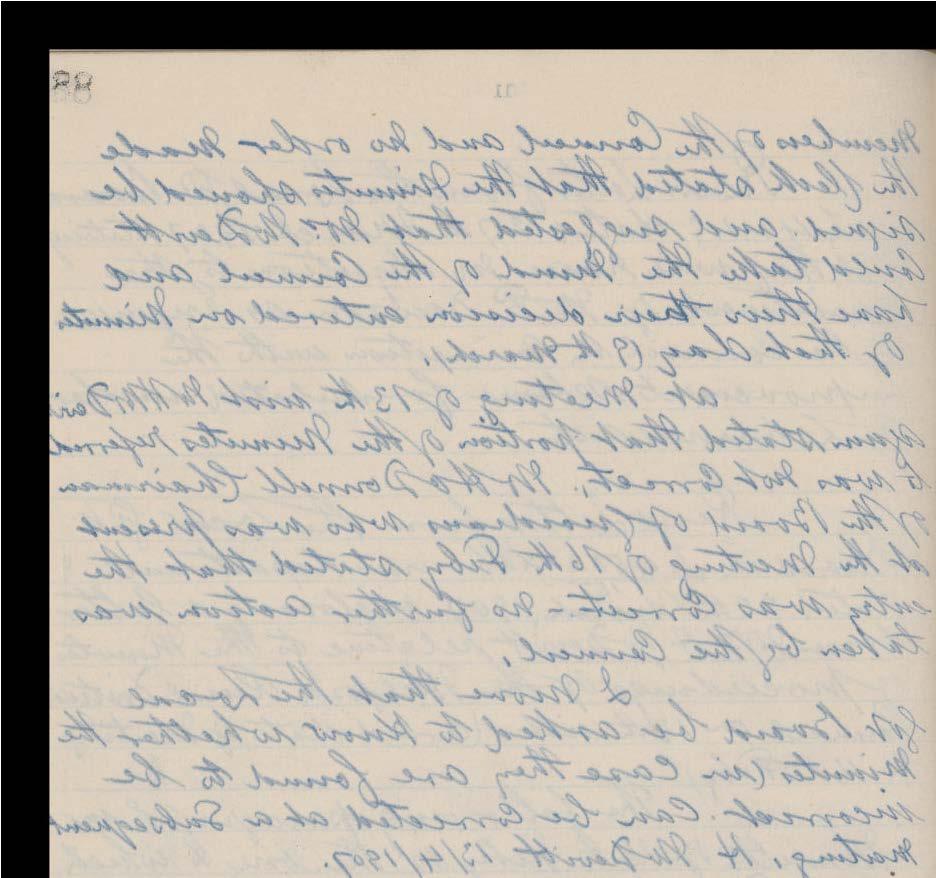 88
11
Members of the Council and no order made
the Clerk stated that the Minutes should be
signed and suggested that Mr McDevitt
Could take the mind of the Council and
have their decision entered on Minutes
of that day (9th March).
at Meeting of 13th inst
again stated that portion of the Minutes referred
to was not Correct. O'Donnell Chairman
of the Board of Guardians who was present
at the Meeting of 16th Feby stated that the
entry was Correct - no further action was
taken by the Council.
I move that the Local
Gov Board be asked to know whether the
Minutes (in Case they are found to be
incorrect. Can be Corrected at a Subsequent
meeting. H McDevitt 13/4/1907.